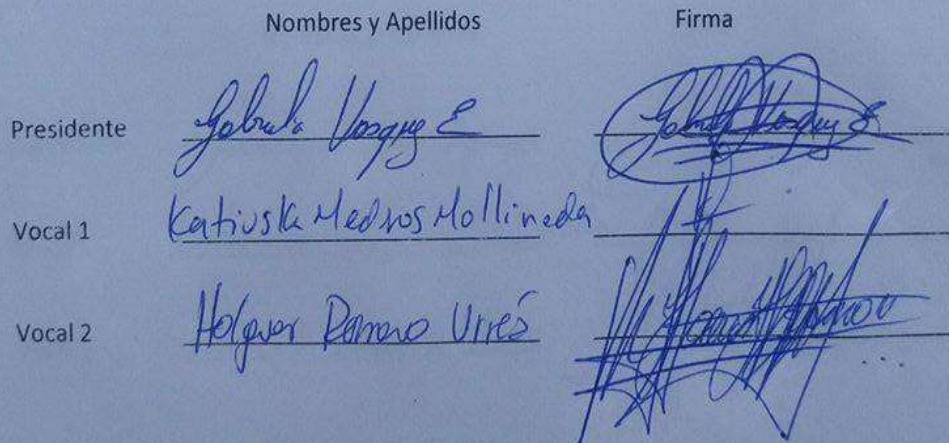 Nombres y Apellidos Firma
Presidente Gabriela Vasquez E
Vocal 1 Katiuska Mollineda
Vocal 2 Holguer Romero Urrés